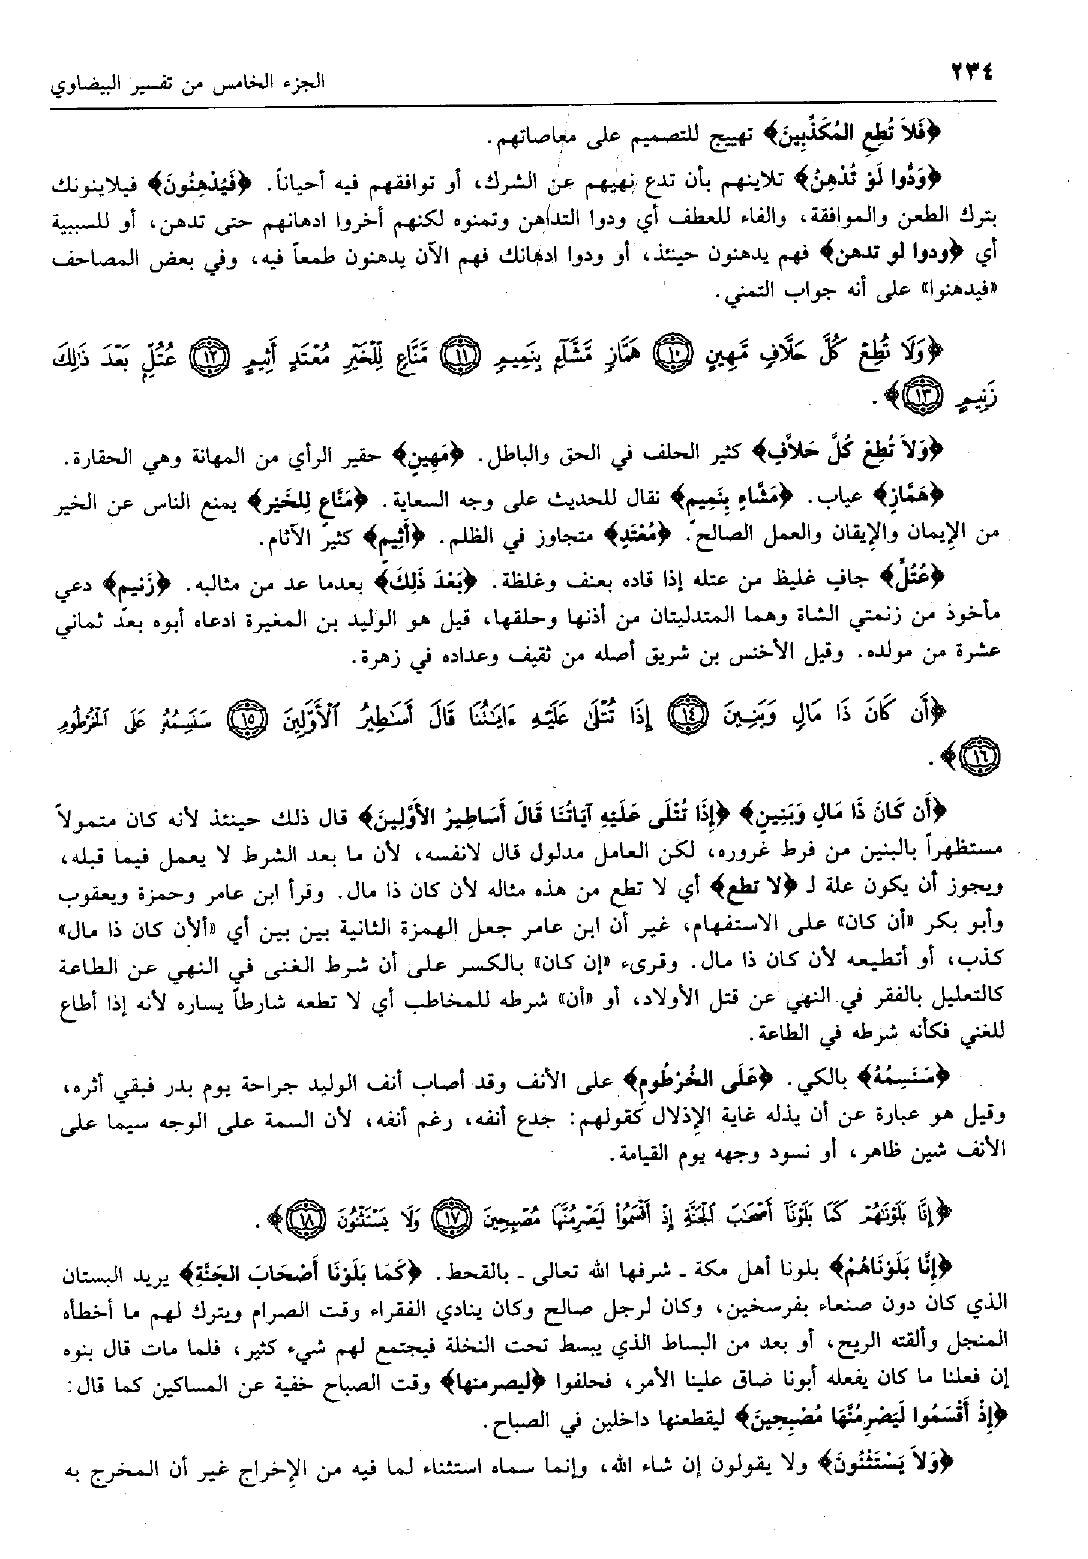 ٢٣٤
الجزء الخامس من تفسير البيضاوي
﴿فَلاَ تُطِعِ المُكَذِّبِينَ﴾ تهييج للتصميم على معاصاتهم.
﴿وَدُّوا لَوْ تُدْهِنُ﴾ تلاينهم بأن تدع نهيهم عن الشرك، أو توافقهم فيه أحياناً. ﴿فَيُدْهِنُونَ﴾ فيلاينونك
بترك الطعن والموافقة، والفاء للعطف أي ودوا التداهن وتمنوه لكنهم أخروا ادهانهم حتى تدهن، أو للسببية
أي ﴿ودوا لو تدهن﴾ فهم يدهنون حينئذ، أو ودوا ادهانك فهم الآن يدهنون طمعاً فيه، وفي بعض المصاحف
«فيدهنوا» على أنه جواب التمني.
﴿وَلَا تُطِعْ كُلَّ حَلَّافٍ مَّهِينٍ ﴿١٠﴾ هَمَّازٍ مَّشَّآءٍ بِنَمِيمٍ ﴿١١﴾ مَّنَّاعٍ لِّلْخَيْرِ مُعْتَدٍ أَثِيمٍ ﴿١٢﴾ عُتُلٍّ بَعْدَ ذَٰلِكَ
زَنِيمٍ ﴿١٣﴾﴾.
﴿وَلاَ تُطِعْ كُلَّ حَلاَّفٍ﴾ كثير الحلف في الحق والباطل. ﴿مَهِينٍ﴾ حقير الرأي من المهانة وهي الحقارة.
﴿هَمَّازٍ﴾ عياب. ﴿مَشَّاءٍ بِنَمِيمٍ﴾ نقال للحديث على وجه السعاية. ﴿مَنَّاعٍ لِلخَيْرِ﴾ يمنع الناس عن الخير
من الإيمان والإيقان والعمل الصالح. ﴿مُعْتَدٍ﴾ متجاوز في الظلم. ﴿أَثِيمٍ﴾ كثير الآثام.
﴿عُتُلٍّ﴾ جاف غليظ من عتله إذا قاده بعنف وغلظة. ﴿بَعْدَ ذَلِكَ﴾ بعدما عد من مثالبه. ﴿زَنيم﴾ دعي
مأخوذ من زنمتي الشاة وهما المتدليتان من أذنها وحلقها، قيل هو الوليد بن المغيرة ادعاه أبوه بعد ثماني
عشرة من مولده. وقيل الأخنس بن شريق أصله من ثقيف وعداده في زهرة.
﴿أَن كَانَ ذَا مَالٍ وَبَنِينَ ﴿١٤﴾ إِذَا تُتْلَىٰ عَلَيْهِ ءَايَٰتُنَا قَالَ أَسَٰطِيرُ ٱلْأَوَّلِينَ ﴿١٥﴾ سَنَسِمُهُۥ عَلَى ٱلْخُرْطُومِ
﴿١٦﴾﴾.
﴿أَن كَانَ ذَا مَالٍ وَبَنِينٍ﴾ ﴿إِذَا تُتْلَى عَلَيْهِ آيَاتُنَا قَالَ أَسَاطِيرُ الأَوَّلِينَ﴾ قال ذلك حينئذ لأنه كان متمولاً
مستظهراً بالبنين من فرط غروره، لكن العامل مدلول قال لانفسه، لأن ما بعد الشرط لا يعمل فيما قبله،
ويجوز أن يكون علة لـ ﴿لا تطع﴾ أي لا تطع من هذه مثاله لأن كان ذا مال. وقرأ ابن عامر وحمزة ويعقوب
وأبو بكر «أن كان» على الاستفهام، غير أن ابن عامر جعل الهمزة الثانية بين بين أي «ألأن كان ذا مال»
كذب، أو أتطيعه لأن كان ذا مال. وقرىء «إن كان» بالكسر على أن شرط الغنى في النهي عن الطاعة
كالتعليل بالفقر في النهي عن قتل الأولاد، أو «أن» شرطه للمخاطب أي لا تطعه شارطاً يساره لأنه إذا أطاع
للغني فكأنه شرطه في الطاعة.
﴿سَنَسِمُهُ﴾ بالكي. ﴿عَلَى الخُرْطُومِ﴾ على الأنف وقد أصاب أنف الوليد جراحة يوم بدر فبقي أثره،
وقيل هو عبارة عن أن يذله غاية الإذلال كقولهم: جدع أنفه، رغم أنفه، لأن السمة على الوجه سيما على
الأنف شين ظاهر، أو نسود وجهه يوم القيامة.
﴿إِنَّا بَلَوْنَٰهُمْ كَمَا بَلَوْنَآ أَصْحَٰبَ ٱلْجَنَّةِ إِذْ أَقْسَمُوا۟ لَيَصْرِمُنَّهَا مُصْبِحِينَ ﴿١٧﴾ وَلَا يَسْتَثْنُونَ ﴿١٨﴾﴾.
﴿إِنَّا بَلَوْنَاهُمْ﴾ بلونا أهل مكة ـ شرفها الله تعالى ـ بالقحط. ﴿كَمَا بَلَوْنَا أَصْحَابَ الجَنَّةِ﴾ يريد البستان
الذي كان دون صنعاء بفرسخين، وكان لرجل صالح وكان ينادي الفقراء وقت الصرام ويترك لهم ما أخطأه
المنجل وألقته الريح، أو بعد من البساط الذي يبسط تحت النخلة فيجتمع لهم شيء كثير، فلما مات قال بنوه
إن فعلنا ما كان يفعله أبونا ضاق علينا الأمر، فحلفوا ﴿ليصرمنها﴾ وقت الصباح خفية عن المساكين كما قال:
﴿إِذْ أَقْسَمُوا لَيَصْرِمُنَّهَا مُصْبِحِينَ﴾ ليقطعنها داخلين في الصباح.
﴿وَلاَ يَسْتَثْنُونَ﴾ ولا يقولون إن شاء الله، وإنما سماه استثناء لما فيه من الإخراج غير أن المخرج به